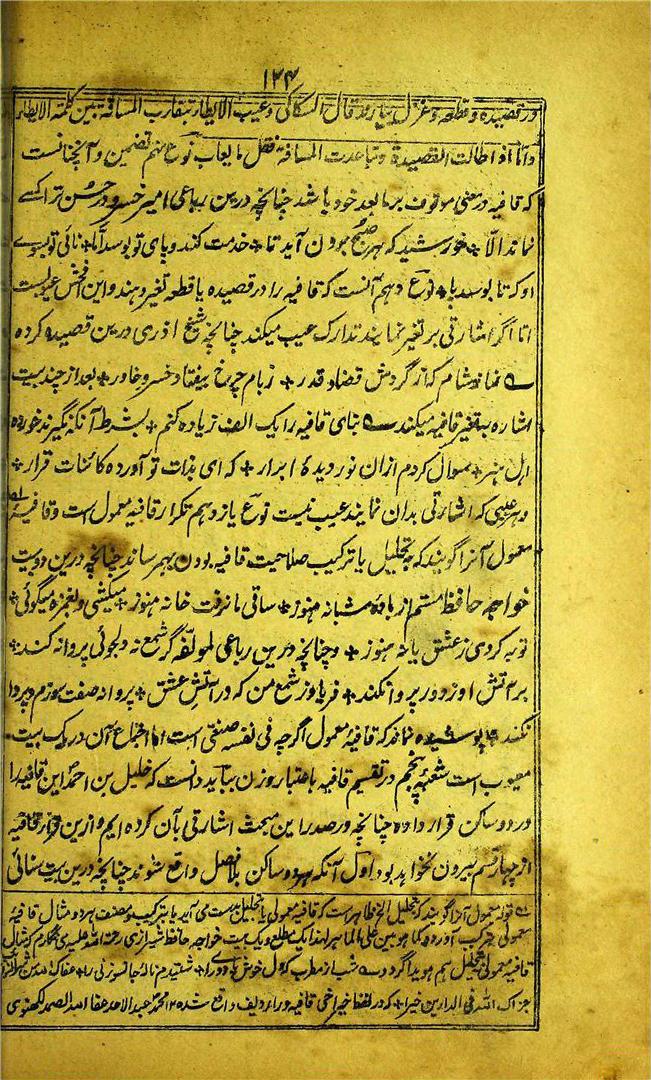 ۱۲۴
در قصیده و قطعه و غزل قال السکاکی و عیب الایطار بتقارب المسافة بین کلمة الایطار
و اما اذا طالت القصیدة و تباعدت المسافة فقل ما یعاب نوع نهم تضمین و آنچنانست
که قافیه در معنی موقوف بر ما بعد خود باشد چنانچه درین رباعی امیر خسرو در حسن ترا کسے
نماند الا + خورشید که هر صبح بدون آید تا + خدمت کند و پای تو بوسد اما + نائی تو
او که تا بوسد پا + نوع دهم آنست که قافیه را در قصیده یا قطعه تغیر دهند و این افحش عیوبست
اما اگر اشارتی بر تغیر نمایند تدارک عیب میکند چنانچه شیخ اذری درین قصیده کرده
ے نماز شام که از گردش قضا و قدر + ز بام چرخ بیفتاد خسرو خاور + بعد از چند بیت
اشاره به تغیر قافیه میکند ے بنای قافیه را یک الف زیاده کنم + بشرط آنکه نگیرند خورده
اهل هنر + سوال کردم ازان نور دیدهٔ ابرار + که ای بذات تو آورده کائنات قرار +
و هر عیبی که اشارتی بدان نمایند عیب نیست نوع یازدهم تکرار قافیه معمول است و قافیهٔ
معمول آنرا گویند که بتحلیل یا ترکیب صلاحیت قافیه بودن بهمرساند چنانچه درین دو بیت
خواجه حافظ مستم از بادهٔ شبانه هنوز + ساقی ما نرفت خانه هنوز + میکشی و بغمزه میگوئی +
توبه کردی ز عشق یا نه هنوز + و چنانچه درین رباعی لمولفه گر شمع نه دلجوئی پروانه کند +
بر آتش او ز دور پر وا نکند + فریاد ز شمع من که در آتش عشق + پروانه صفت بسوزم و پروا
نکند + پوشیده نماند که قافیهٔ معمول اگرچه فی نفسه صنعتی است اما اجتماع آن در یک بیت
معیوب است شعبهٔ پنجم در تقسیم قافیه باعتبار وزن بباید دانست که خلیل بن احمد این قافیه را
در دو ساکن قرار داده چنانچه در صدر این مبحث اشارتی بآن کرده ایم و ازین قرار قافیه
از چهار قسم بیرون نخواهد بود اول آنکه هر دو ساکن بلا فصل واقع شوند چنانچه درین بیت سنائی
ے قوله معمول آنرا گویند که بتحلیل الخ ظاهر است که قافیهٔ معمولی یا بتحلیل بدست می آید یا بترکیب و مصنف هر دو مثال قافیهٔ
معمولی ترکیب آورده کما هو بین علی الماهر اما یک مطلع و یک بیت خواجه حافظ شیرازی رحمة الله علیه که مثال
قافیهٔ معمولی بتحلیل هم هویدا گردد ے شب از مطرب که دل خوش باد وی را + شنیدم ناله جانسوز نی را +
جزاک الله فی الدارین خیرا + که در لفظ خیرا خی قافیه و را ردیف واقع شده ۱۲ محمد عبدالاحد عفا الله الصمد لکهنوی